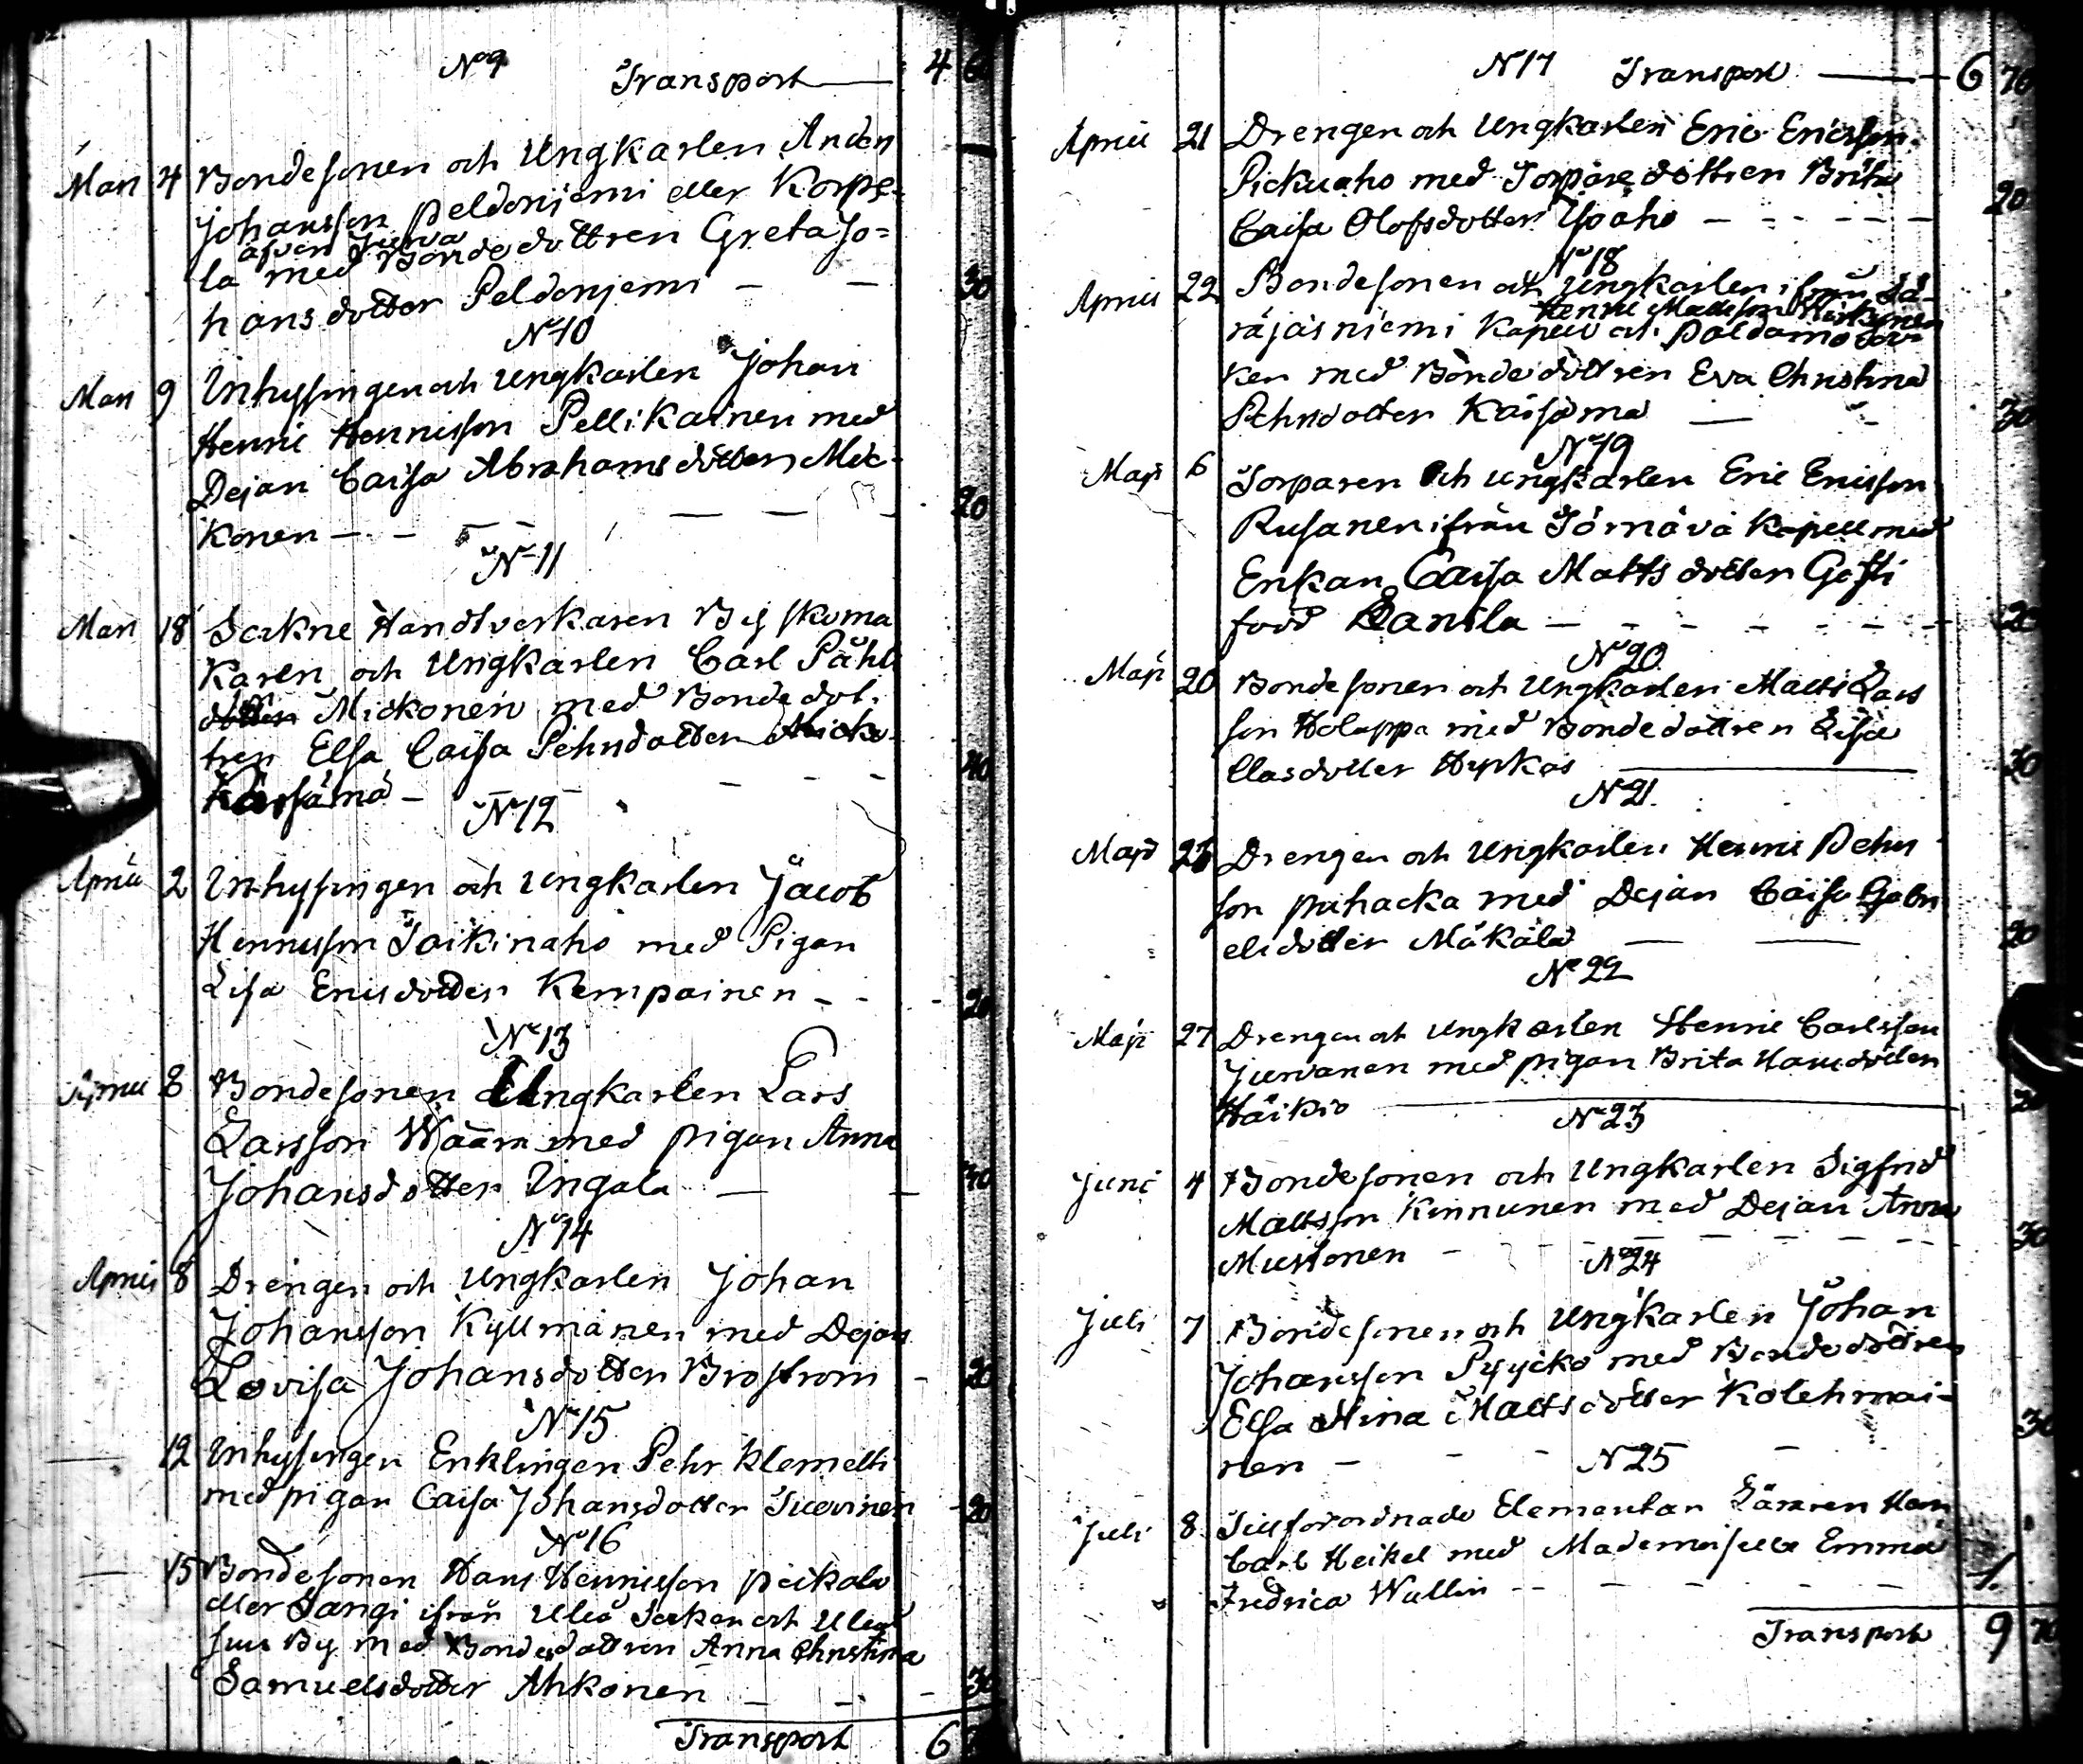 No 9 Transport — 4 60
Mars 4 Bondesonen och Ungkarlen Anders
Johansson Peldoniemi eller Korpe-
äfven Juva
la med Bonde dottren Greta Jo=
hansdotter Peldoniemi — — 30
No 10
Mars 9 Inhysingen och Ungkarlen Johan
Henric Henricsson Pellikainen med
Dejan Caisa Abrahamsdotter Mic-
konen — — — — 20
No 11
Mars 18 Sockne Handtverkaren By skoma
karen och Ungkarlen Carl Påhls
Mickonen med Bonde dot-
tren Elsa Caisa Pehrsdotter
Kärsämä — — — — 40
No 12
April 2 Inhysingen och Ungkarlen Jacob
Henricsson Toikinaho med Pigan
Lisa Ericsdotter Kemppainen - - 20
No 13
April 8 Bondesonen Ungkarlen Lars
Larsson Wäärä med pigan Anna
Johansdotter Ingala — — 40
No 14
April 8 Drengen och Ungkarlen Johan
Johansson Kyllmänen med Dejan
Lovisa Johansdotter Broström - 20
No 15
— 12 Inhysingen Enklingen Pehr Klemetti
med pigan Caisa Johansdotter Suovinen - 20
No 16
— 15 Bondesonen Hans Henricsson Peikola
eller Sangi ifrån Uleå Socken och Uleå
suu By med Bondedottren Anna Christina
Samuelsdotter Ahkonen — - - 30
Transport 6
N 17 Transport — 6 70
April 21 Drengen och Ungkarlen Eric Ericsson
Pickuaho med Torpare dottren Brita
Caisa Olofsdotter Ypåho — - - - — 20
No 18
April 22 Bondesonen och Ungkarlen ifrån Sä-
Henric Mattsson
räjäsniemi Kapell och Paldamo Soc-
ken med Bonde dottren Eva Christina
Pehrsdotter Kärsämä — - 30
No 19
Maji 6 Torparen och Ungkarlen Eric Ericsson
Rusanen ifrån Törnävä Kapell med
Enkan Caisa Matts dotter Gästi
född Danila — - - - - - — 20
No 20
Maji 20 Bondesonen och Ungkarlen Matts Lars
son Holappa med Bonde dottren Lisa
Clasdotter Hyrkäs — 30
N 21
Maji 25 Drengen och Ungkarlen Henric Pehrs
son Puhacka med Dejan Caisa Gabri
elsdotter Mäkälä — — 20
No 22
Maji 27 Drengen och Ungkarlen Henric Carlsson
Jurvanen med pigan Brita Hansdotter
Häikiö — 20
No 23
Juni 4 Bondesonen och Ungkarlen Sigfrid
Mattsson Kinnunen med Dejan Anna
Mustonen — - - - - - - 30
No 24
Juli 7 Bondesonen och Ungkarlen Johan
Johansson Pyycko med Bonde dottren
Elsa Stina Mattsdotter Kolehmai-
nen — - - — 30
N 25
Juli 8 Tillförordnade Elementar Läraren Herr
Carl Heikel med Mademoiselle Emma
Fredrica Wallin — - - - - - 1
Transport 9 70